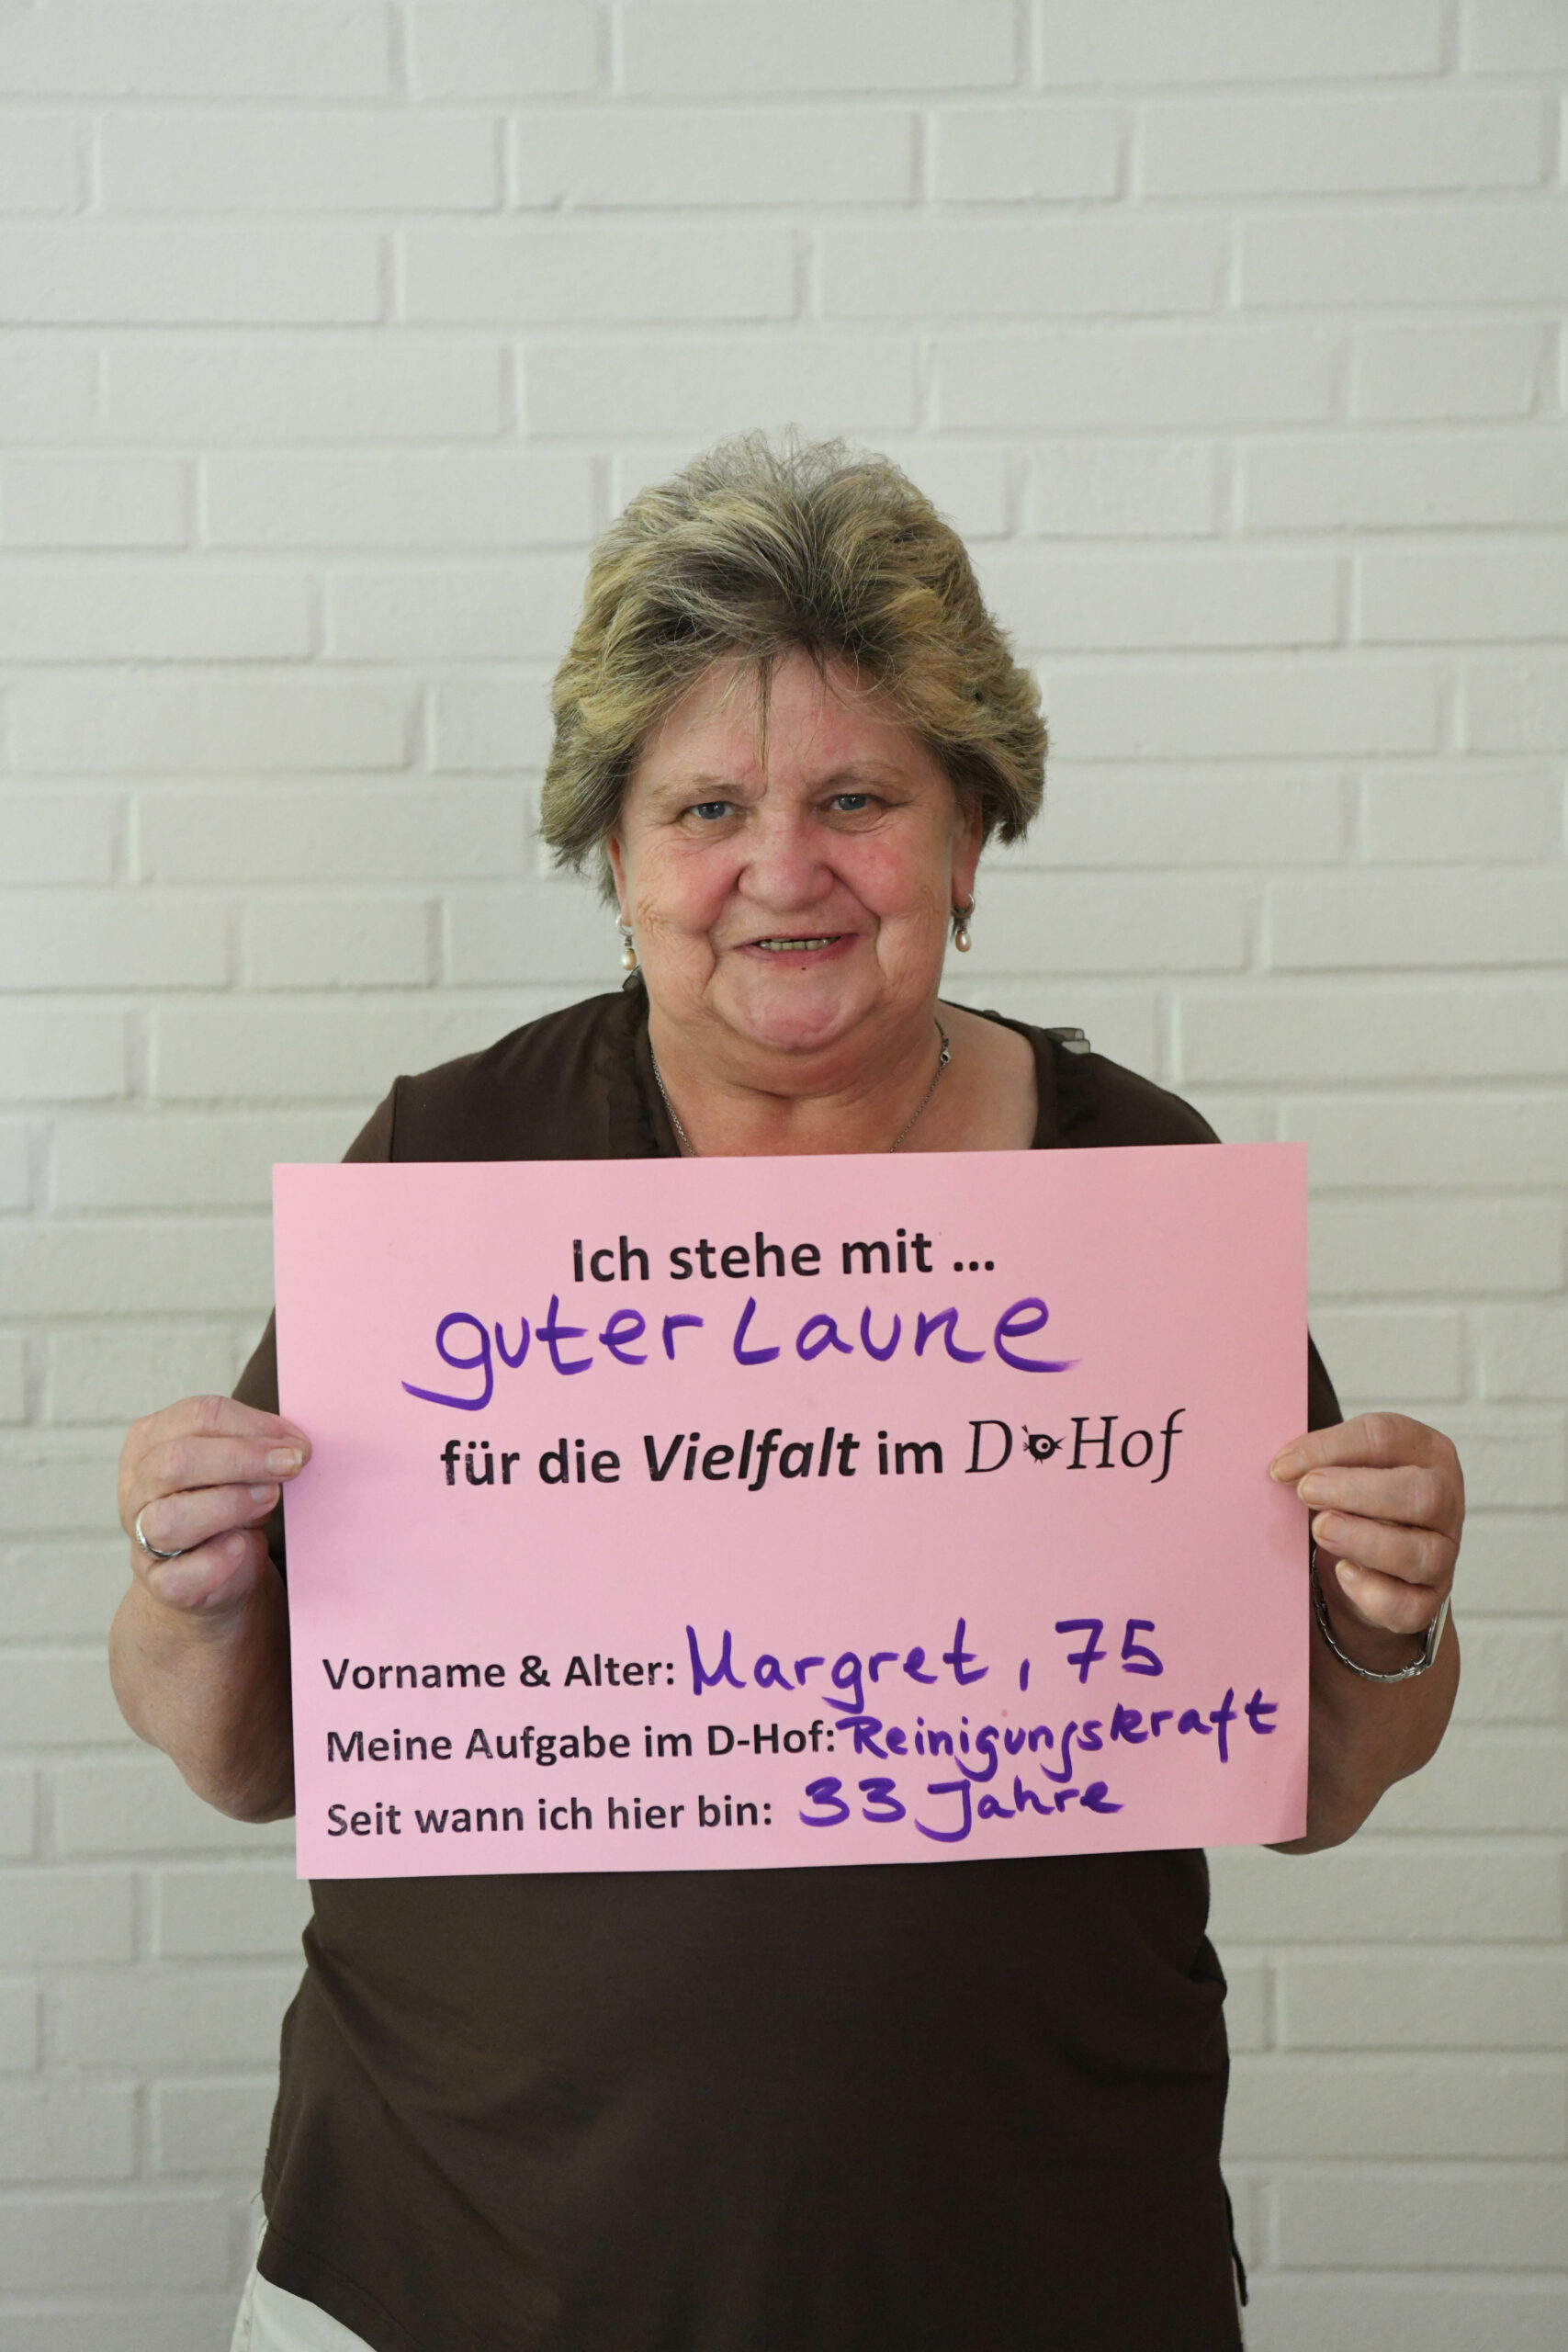 Ich stehe mit ...
guter Laune
für die Vielfalt im D Hof
Vorname & Alter: Margret, 75
Meine Aufgabe im D-Hof: Reinigungskraft
Seit wann ich hier bin: 33 Jahre